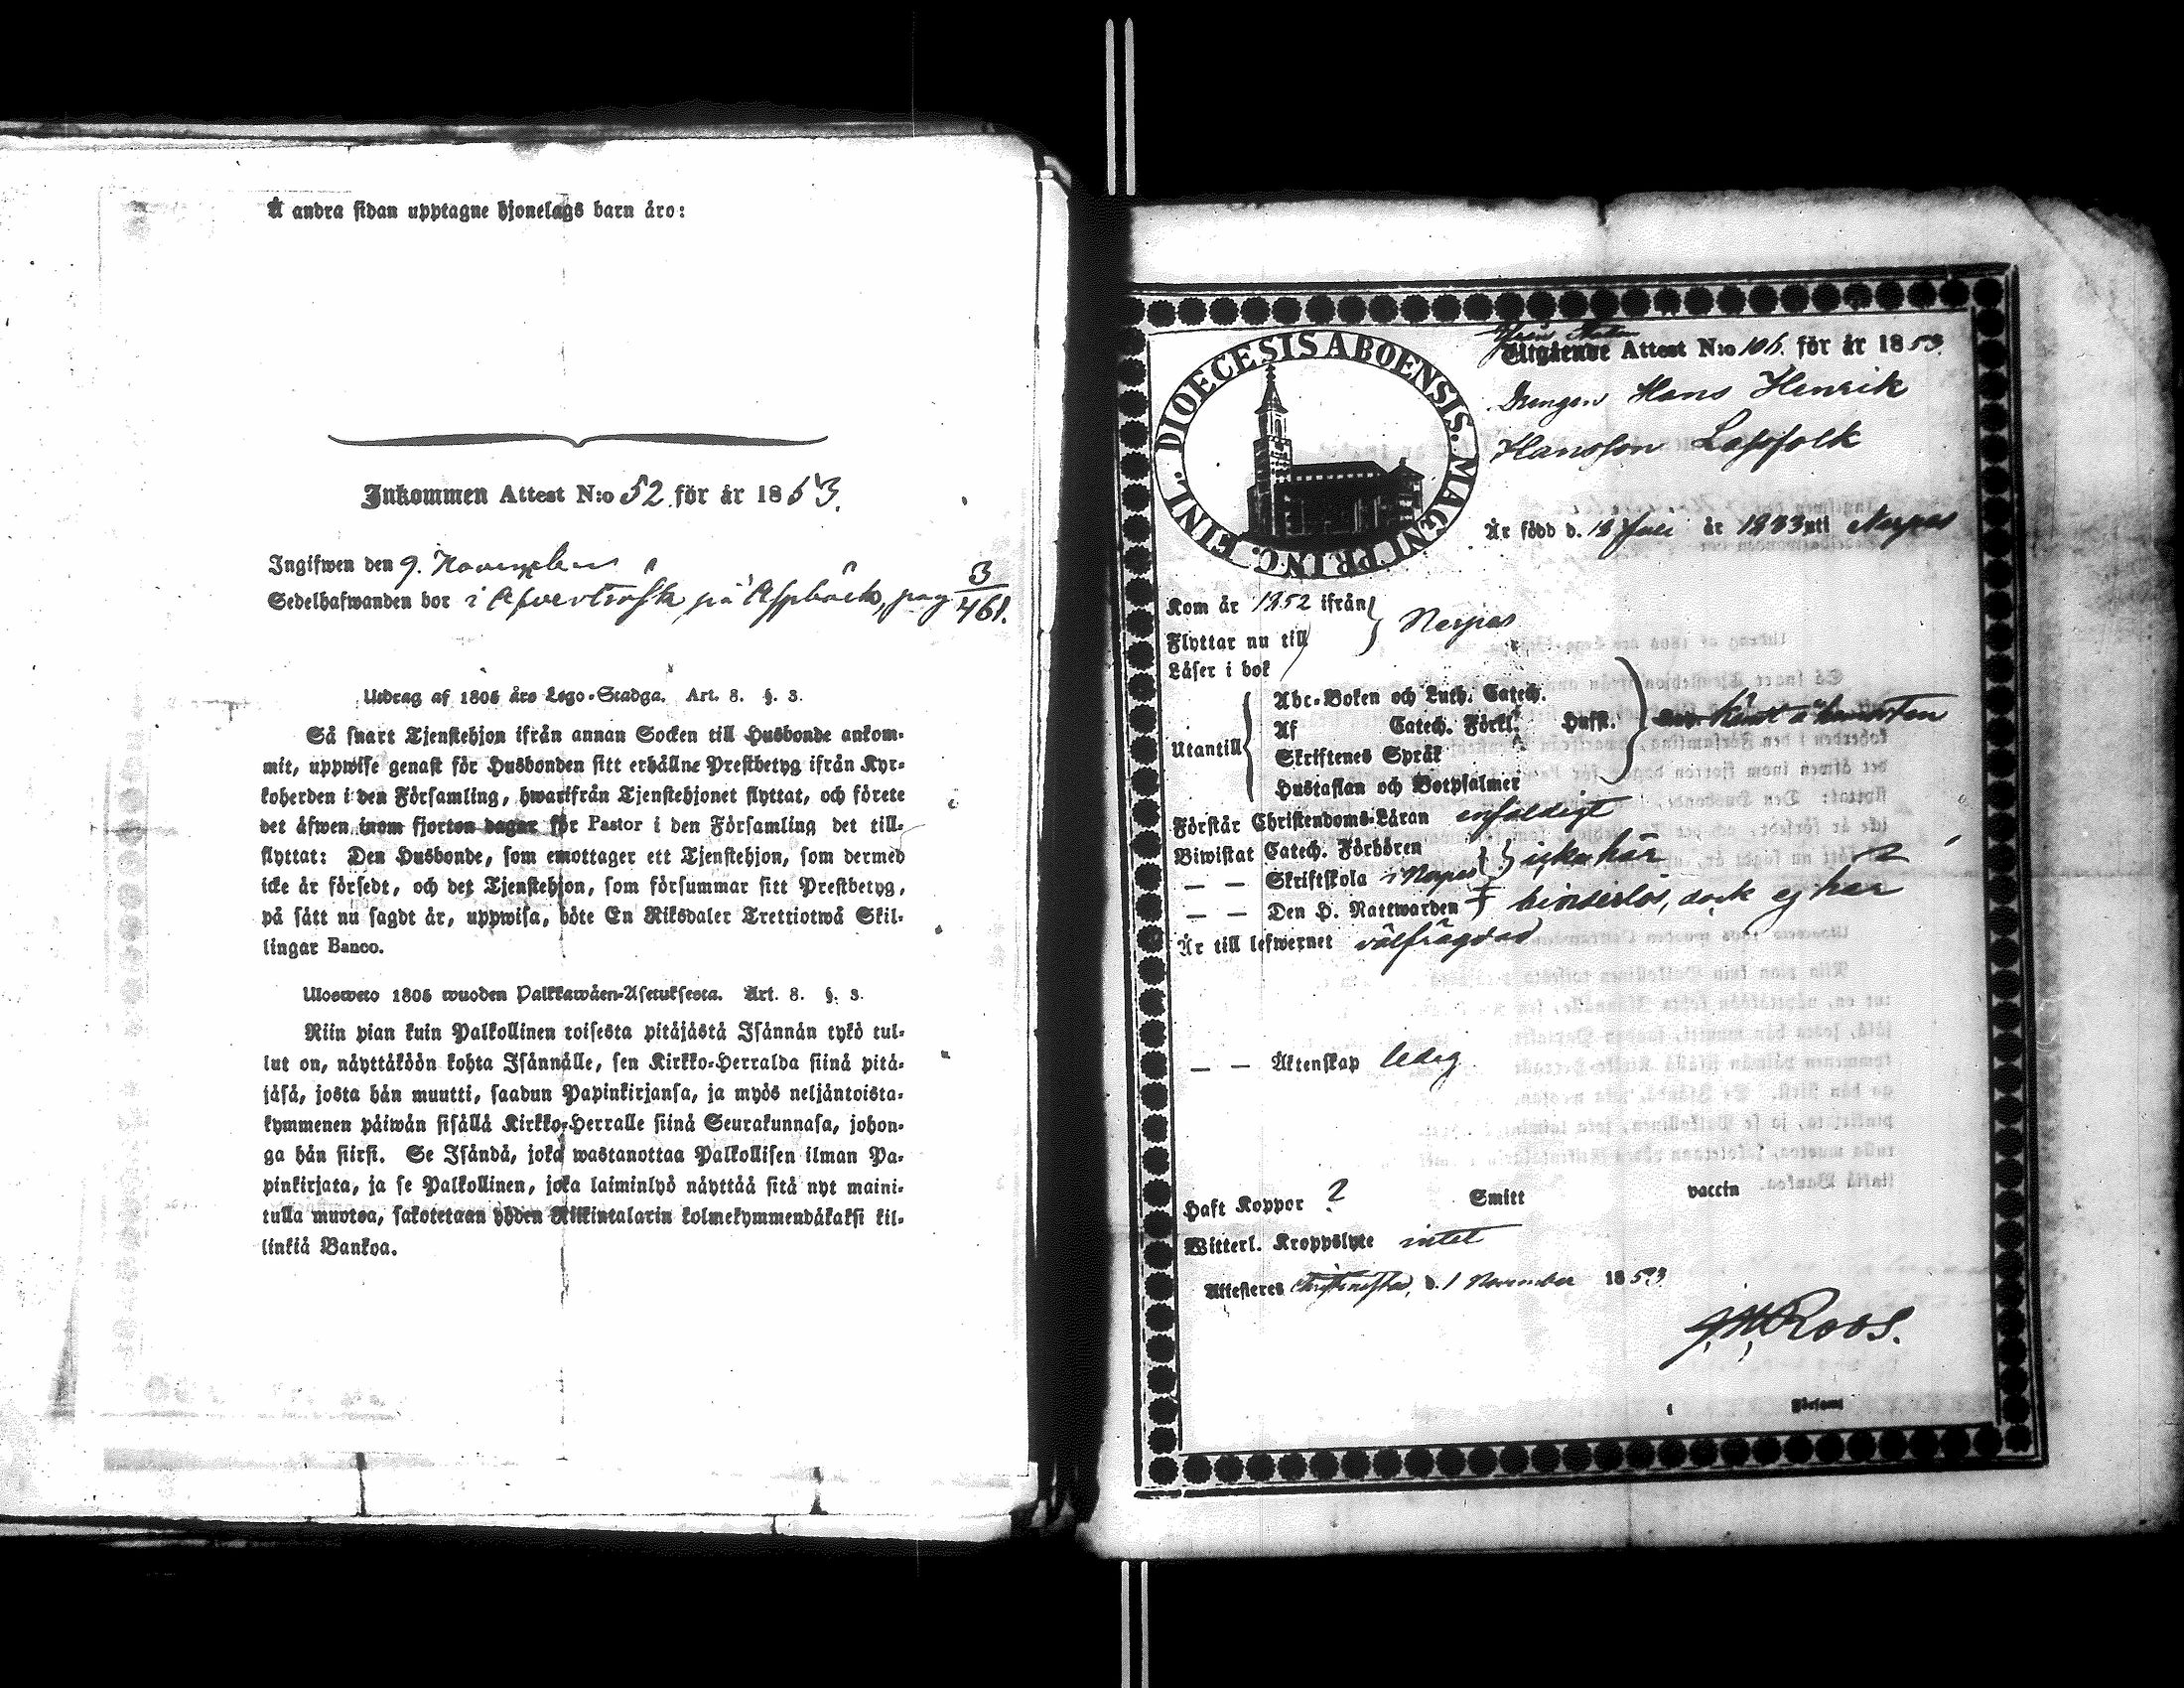 Å andra sidan upptagne hjonelags barn äro:
Inkommen Attest N:o 52 för år 1853.
Ingifwen den 9. November
Sedelhafwanden bor i Öfverträsk på Aspbäck, pag 3/461.
Utdrag af 1805 års Lego-Stadga. Art. 8. §. 3.
Så snart Tjenstehjon ifrån annan Socken till Husbonde ankom-
mit, uppwise genast för Husbonden sitt erhållne Prestbetyg ifrån Kyr-
koherden i den Församling, hwarifrån Tjenstehjonet flyttat, och förete
det äfwen inom fjorton dagar för Pastor i den Församling det till-
flyttat: Den Husbonde, som emottager ett Tjenstehjon, som dermed
icke är försedt, och det Tjenstehjon, som försummar sitt Prestbetyg,
på sätt nu sagdt är, uppwisa, böte En Riksdaler Trettiotwå Skil-
lingar Banco.
Ulosweto 1805 wuoden Palkkawäen-Asetuksesta. Art. 8. §. 3.
Niin pian kuin Palkollinen toisesta pitäjästä Isännän tykö tul-
lut on, näyttäköön kohta Isännälle, sen Kirkko-Herralda siinä pitä-
jäsä, josta hän muutti, saadun Papinkirjansa, ja myös neljäntoista-
kymmenen päiwän sisällä Kirkko-Herralle siinä Seurakunnasa, johon-
ga hän siirsi. Se Isändä, joka wastanottaa Palkollisen ilman Pa-
pinkirjata, ja se Palkollinen, joka laiminlyö näyttää sitä nyt maini-
tulla muotoa, sakotetaan yhden Riikintalarin kolmekymmendäkaksi kil-
linkiä Bankoa.
DIOECESIS ABOENSIS. MAGNI PRINC. FINL.
Utgående Attest N:o 106. för år 1853.
Drengen Hans Henrik
Hansson Lassfolk
Är född d. 12 Juli år 1833 uti Nerpes
Kom år 1852 ifrån
Flyttar nu till } Nerpes
Läser i bok
Utantill
Abc-Boken och Luth. Catech.
Af Catech. Förkl. Husst.
Skriftenes Språk
Hustaflan och Botpsalmer
Förstår Christendoms-Läran enfaldigt
Biwistat Catech. Förhören } icke här
— — Skriftskola i Nerpes
— — Den H. Nattwarden hinderlös, dock ej här
Är till lefwernet välfrägdad
— — Äktenskap ledig
Haft Koppor ? Smitt vaccin
Witterl. Kroppslyte intet
Attesteres Christinestad, d. 1 November 1853
Roos.
Församl